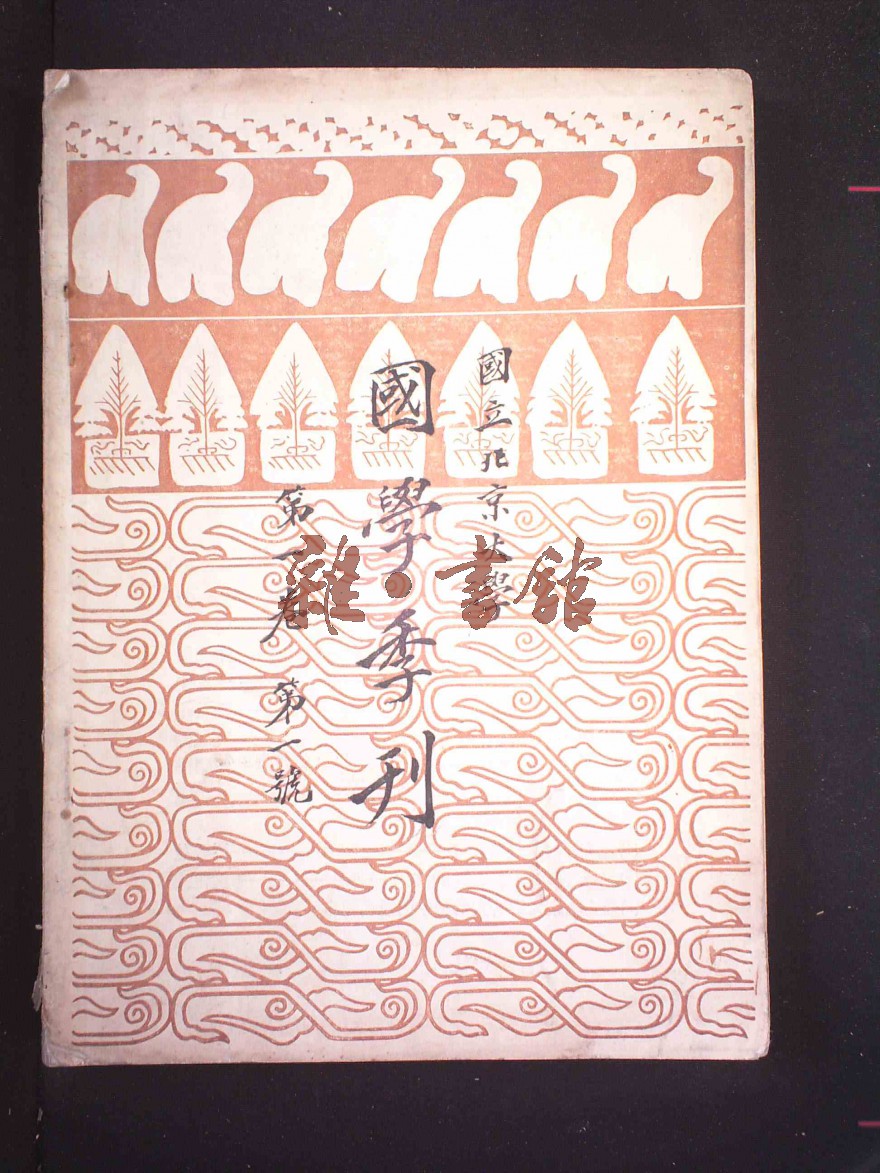 國立北京大學
國學季刊
第一卷 第一號
雜·書館